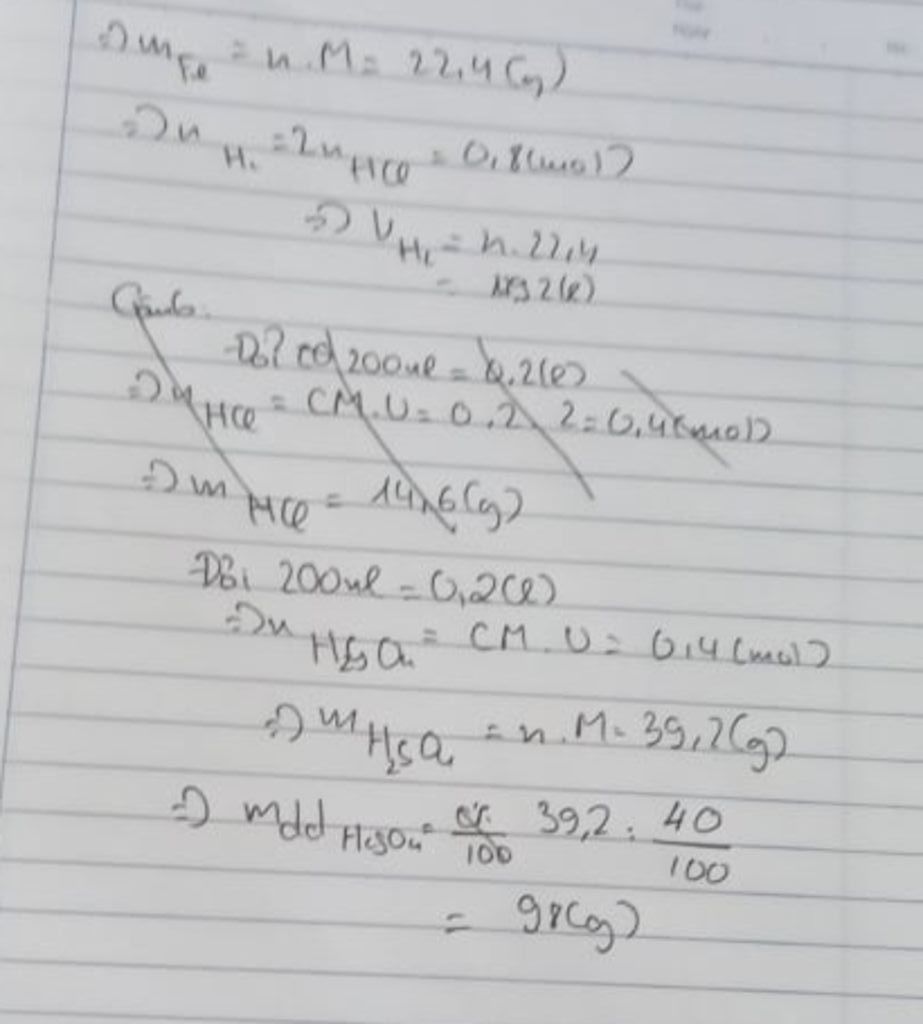 => m Fe = n.M = 22,4(g)
=> n H₂ = 2n HCl = 0,8(mol)
=> V H₂ = n.22,4
= 17,92(l)
Câu6.
Đổi 200ml = 0,2(l)
=> n HCl = CM.V = 0,2 . 2 = 0,4(mol)
=> m HCl = 14,6(g)
Đổi 200ml = 0,2(l)
=> n H₂SO₄ = CM.V = 0,4(mol)
=> m H₂SO₄ = n.M = 39,2(g)
=> mdd H₂SO₄ = 39,2 : 40/100
= 98(g)